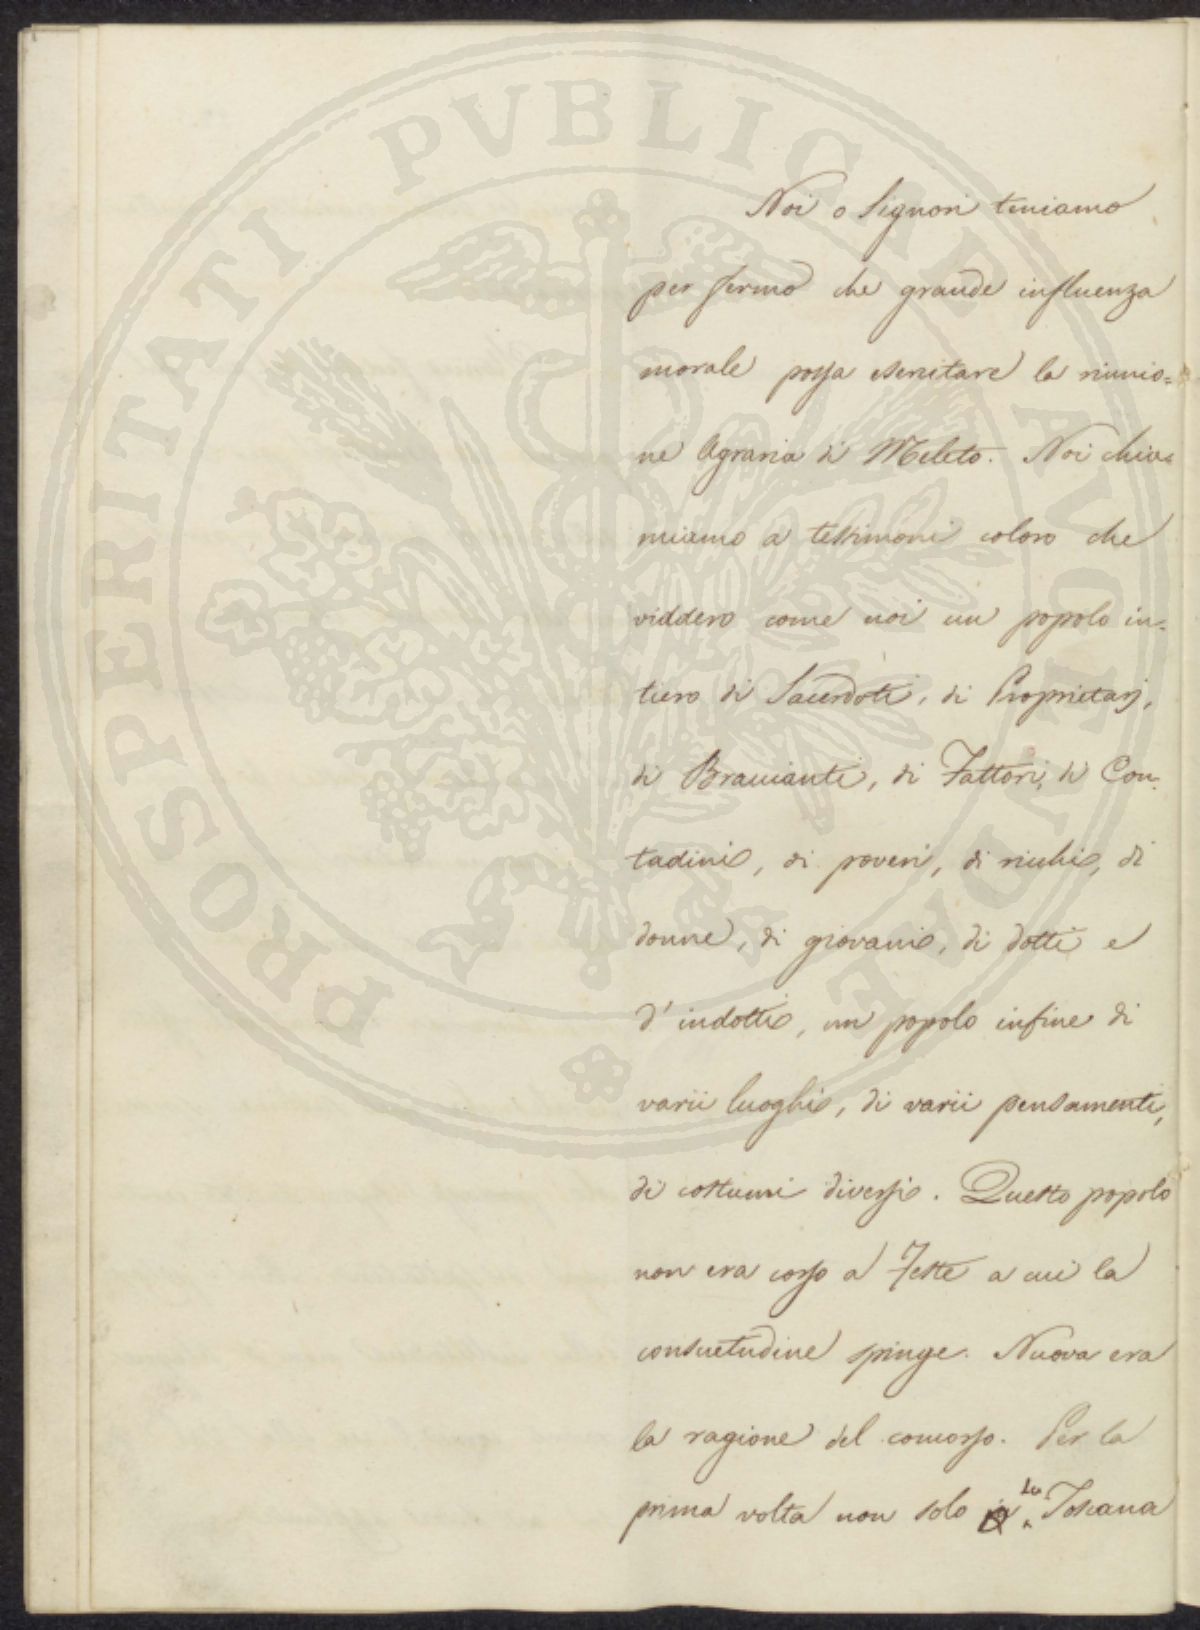 PROSPERITATI PVBLICAE AVGENDAE
Noi o Signori teniamo
per fermo che grande influenza
morale possa esercitare la riunio=
ne Agraria di Meleto. Noi chia=
miamo a testimoni coloro che
viddero come noi un popolo in=
tiero di Sacerdoti, di Proprietarj,
di Braccianti, di Fattori, di Con=
tadini, di poveri, di ricchi, di
donne, di giovani, di dotti e
d'indotti, un popolo infine di
varii luoghi, di varii pensamenti,
di costumi diversi. Questo popolo
non era corso a Feste a cui la
consuetudine spinge. Nuova era
la ragione del concorso. Per la
prima volta non solo la Toscana